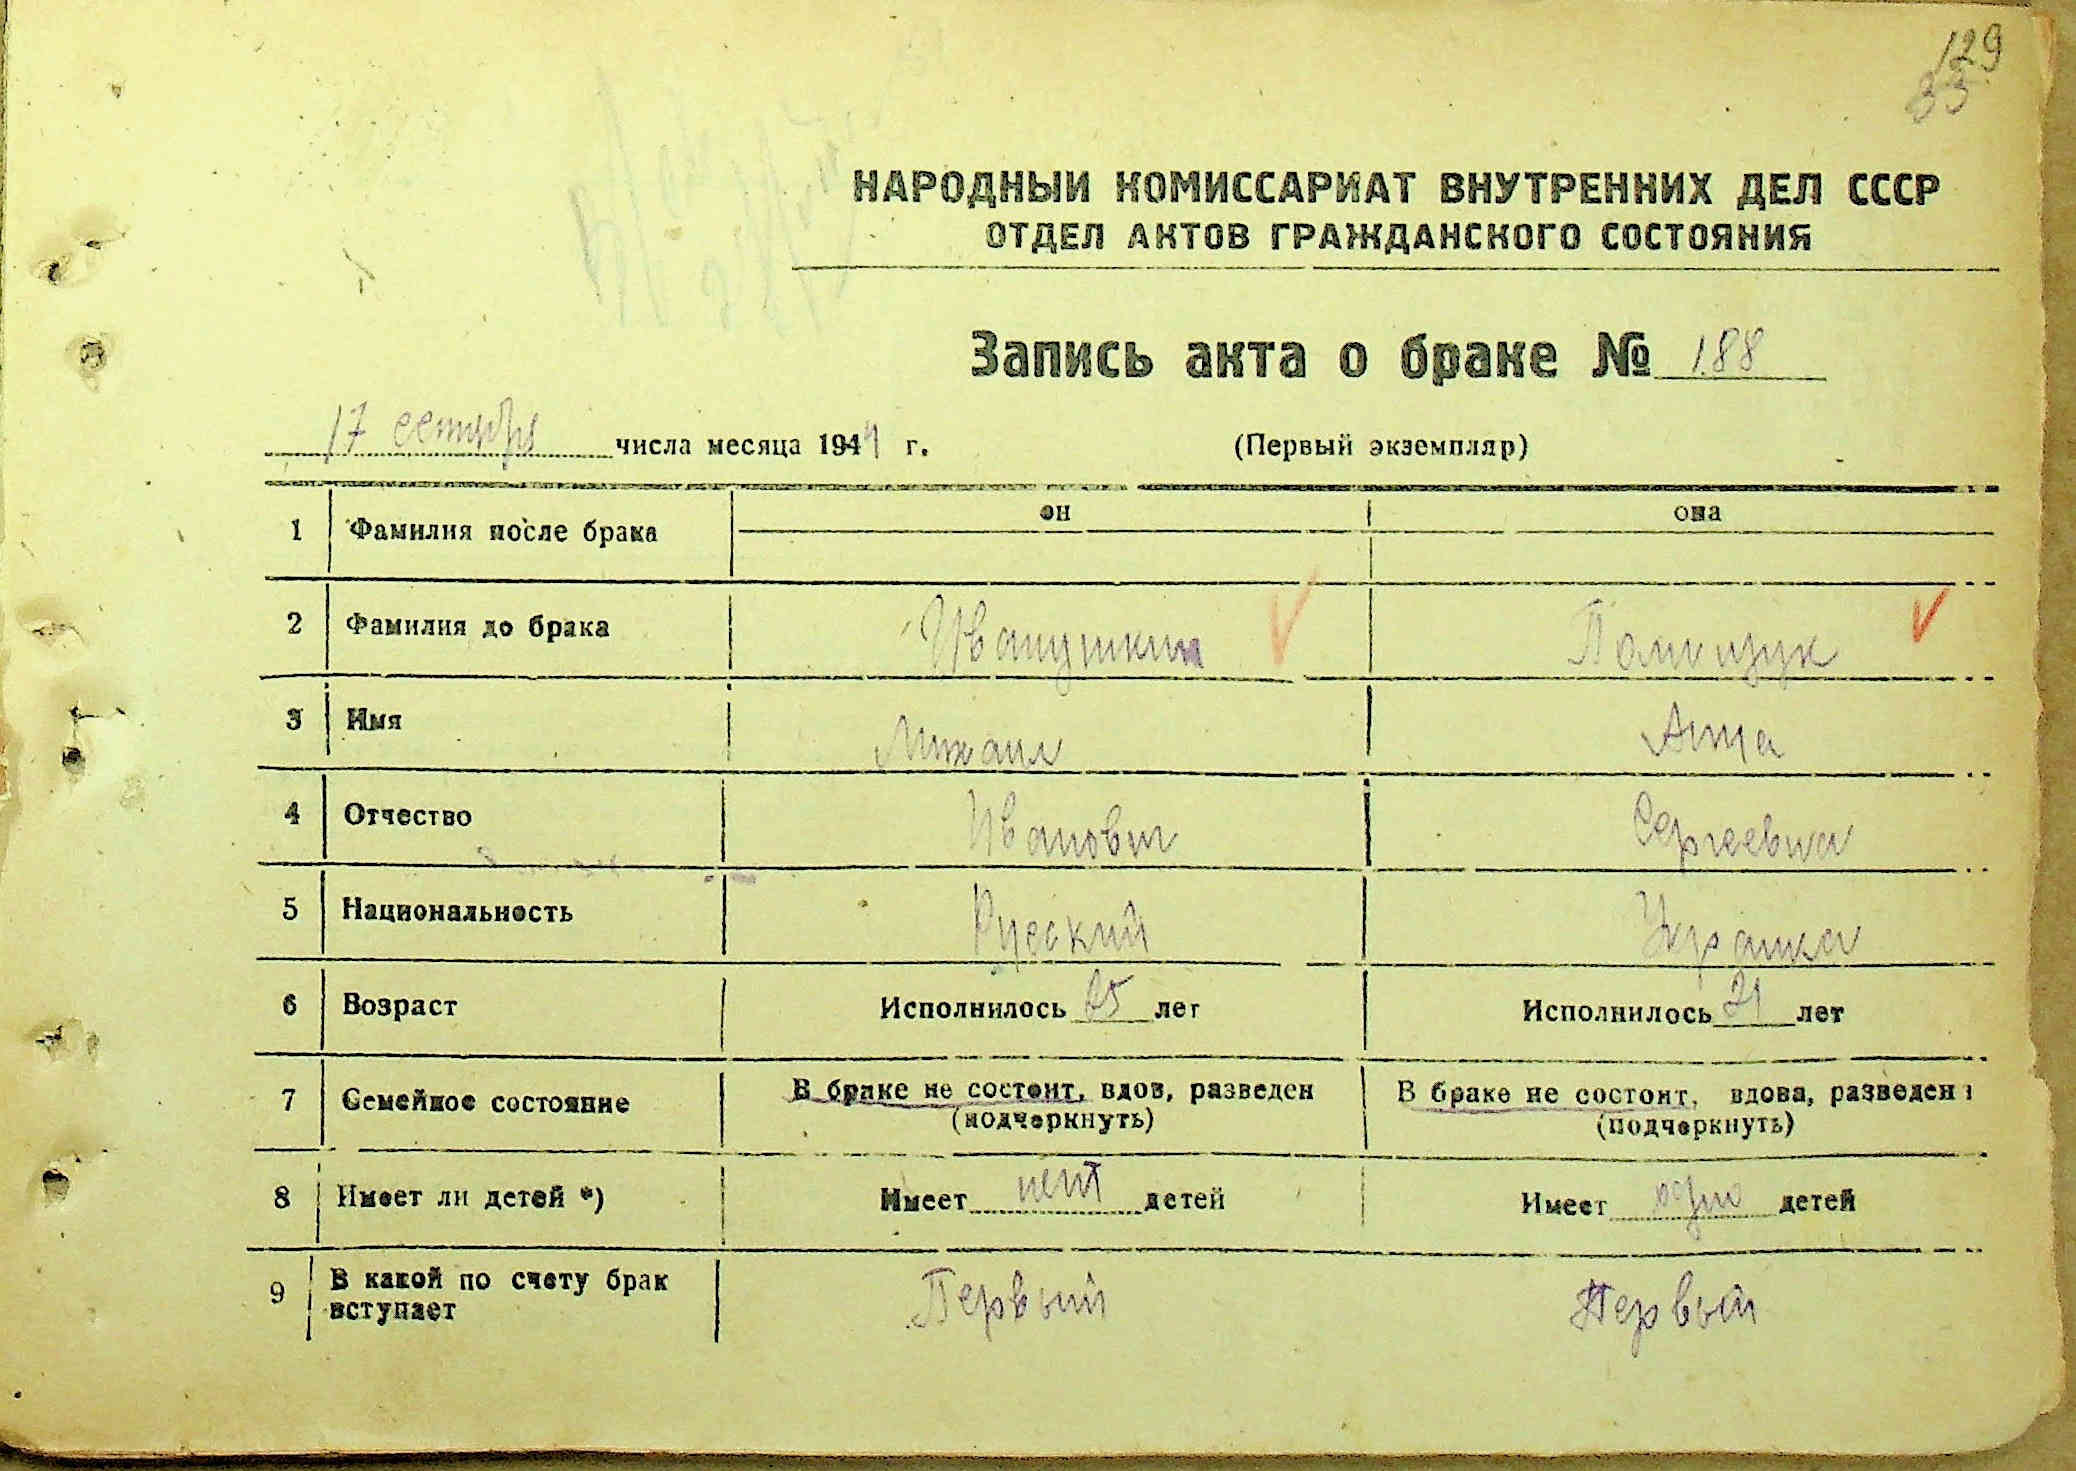 129
33
НАРОДНЫЙ КОМИССАРИАТ ВНУТРЕННИХ ДЕЛ СССР
ОТДЕЛ АКТОВ ГРАЖДАНСКОГО СОСТОЯНИЯ
Запись акта о браке № 188
17 сентября числа месяца 1944 г. (Первый экземпляр)
1 Фамилия после брака он она
2 Фамилия до брака Ивашушкин Полищук
3 Имя Михаил Анна
4 Отчество Иванович Сергеевна
5 Национальность Русский Украинка
6 Возраст Исполнилось 25 лет Исполнилось 21 лет
7 Семейное состояние В браке не состоит, вдов, разведен В браке не состоит, вдова, разведена
(подчеркнуть) (подчеркнуть)
8 Имеет ли детей *) Имеет нет детей Имеет одно детей
9 В какой по счету брак Первый Первый
вступает